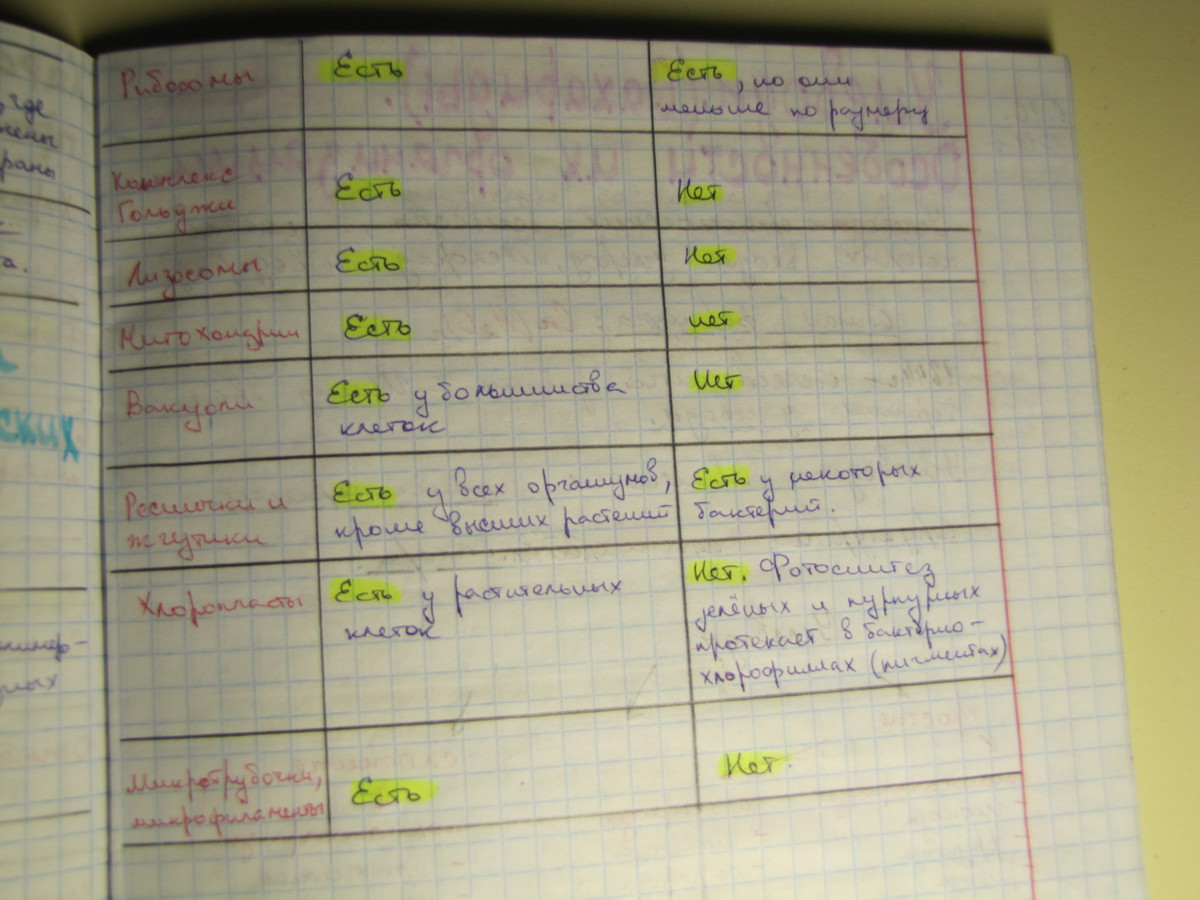 Рибосомы
Есть
Есть, но они
меньше по размеру
Комплекс
Гольджи
Есть
Нет
Лизосомы
Есть
Нет
Митохондрии
Есть
нет
Вакуоли
Есть у большинства
клеток
Нет
Реснички и
жгутики
Есть у всех организмов,
кроме высших растений
Есть у некоторых
бактерий.
Хлоропласты
Есть у растительных
клеток
Нет. Фотосинтез
зелёных и пурпурных
протекает в бактерио-
хлорофиллах (пигментах)
Микротрубочки,
микрофиламенты
Есть
Нет.
, где
раны
а.
ских